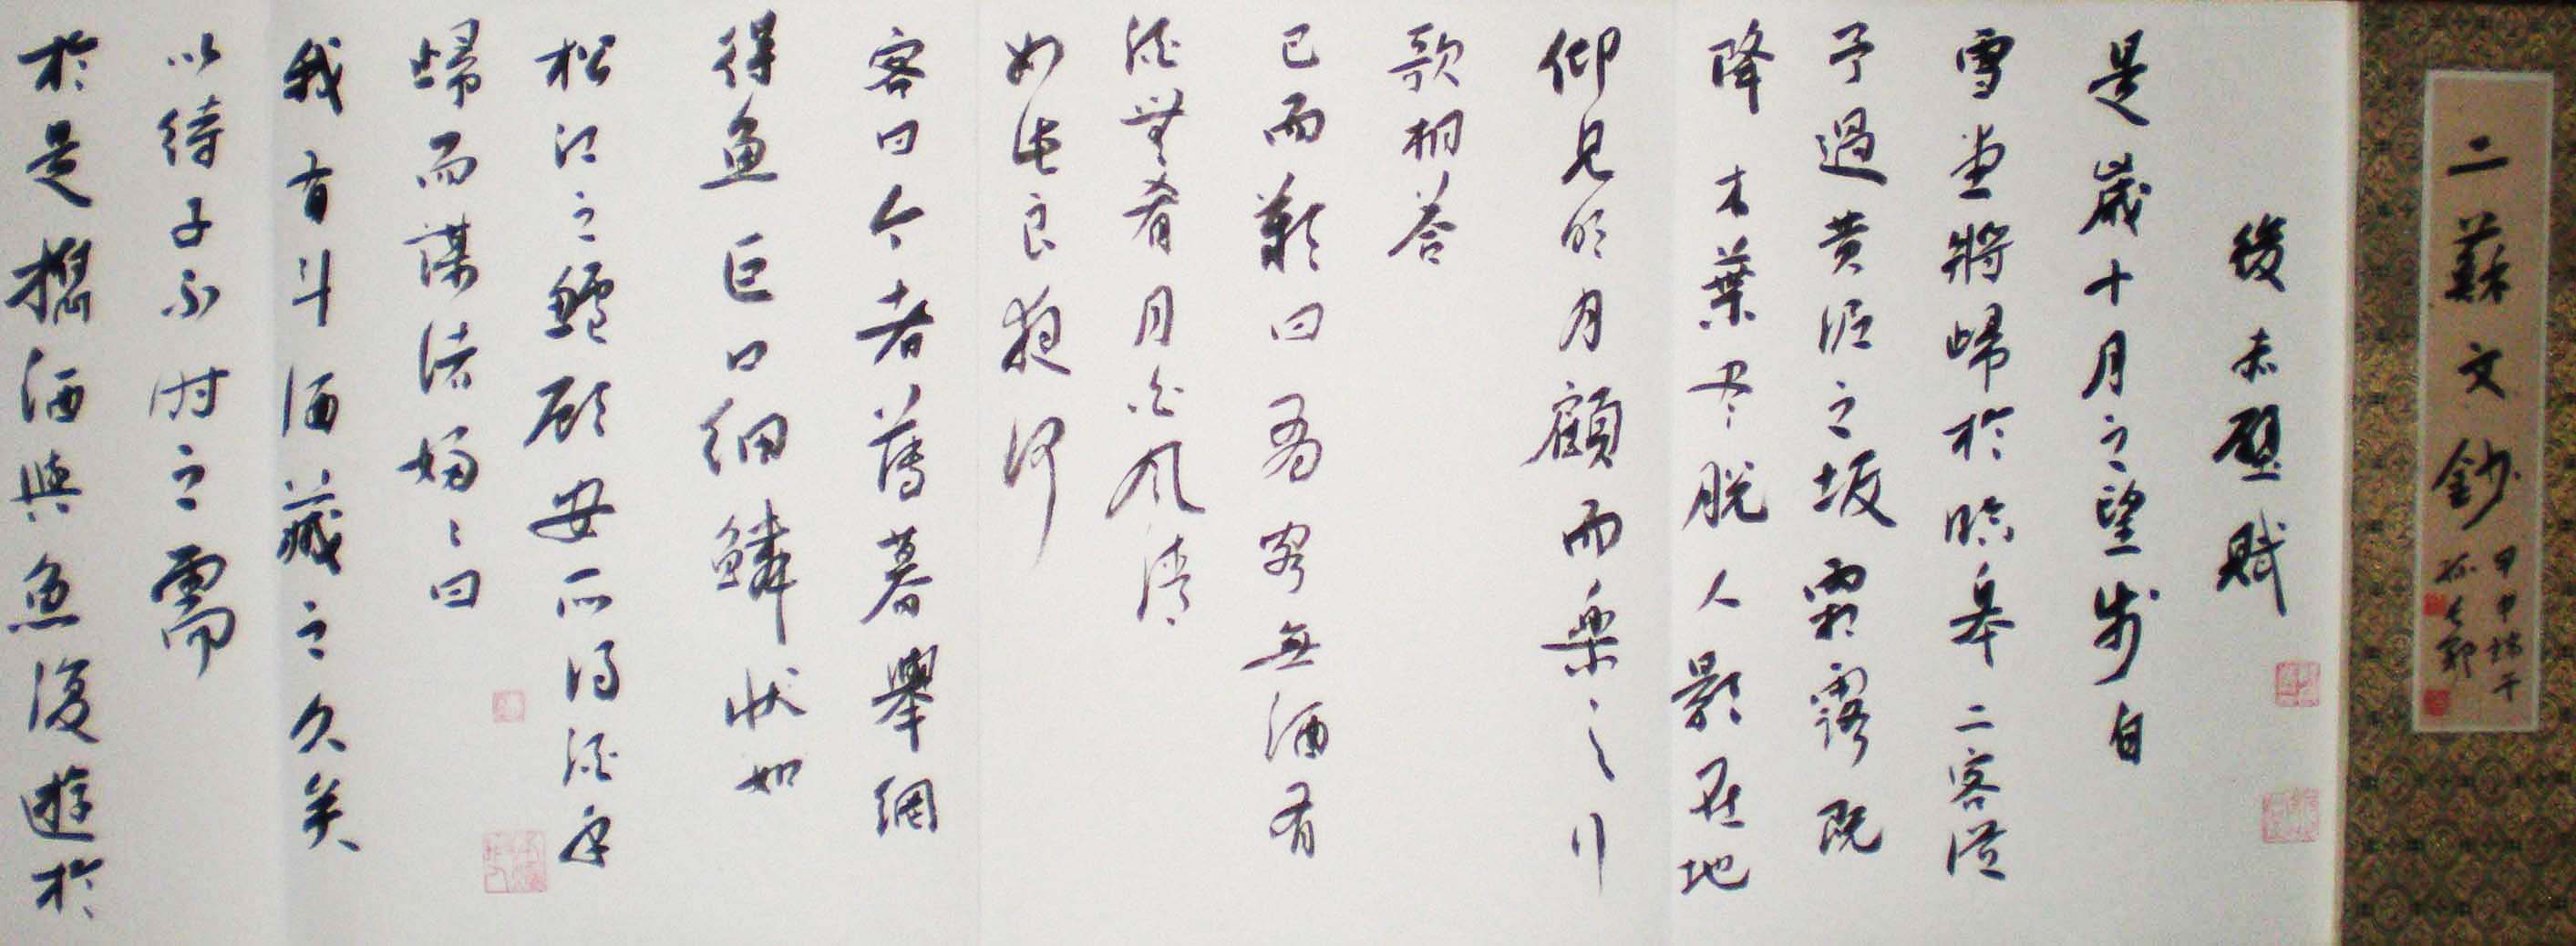 二蘇文鈔
甲申端午
後赤壁賦
是歲十月之望步自
雪堂將歸於臨皋二客從
予過黃泥之坂霜露既
降木葉尽脫人影在地
仰見明月顧而樂之行
歌相答
已而歎曰有客無酒有
酒無肴月白風清
如此良夜何
客曰今者薄暮舉網
得魚巨口細鱗狀如
松江之鱸顧安所得酒乎
歸而謀諸婦々曰
我有斗酒藏之久矣
以待子不時之需
於是攜酒與魚復遊於